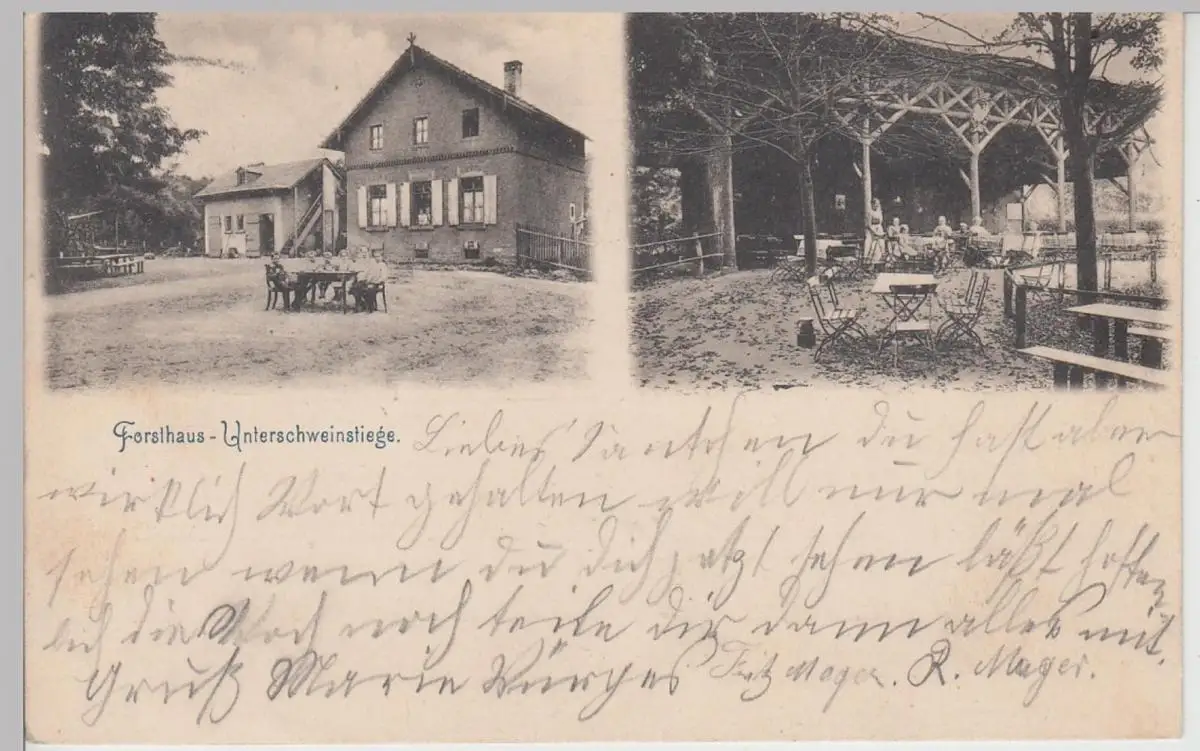 Forsthaus-Unterschweinstiege.
Liebes Täntchen du hast aber
wirklich Wort gehalten will nur mal
sehen wenn du dich jetzt sehen läßt hoffent
lich die Woch noch teile dir dann alles mit.
Gruß Marie Würges Fritz Mayer. R. Mayer.